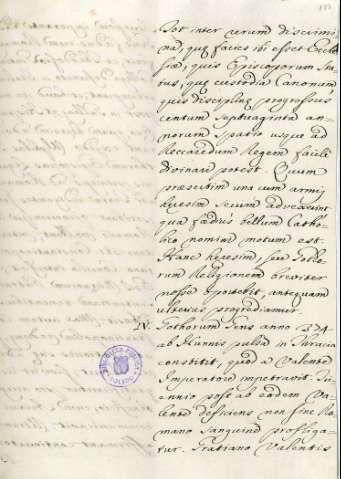 Tot inter rerum discrimi
na, quę facies ibi esset Eccle
siæ, quis Episcoporum sta
tus, quę custodia Canonum,
quis disciplinę progressus
centum septuaginta an-
norum spatio usque ad
Reccaredum Regem facilè
divinari potest. Quum
præsertim una cum armis
hæresim secum advexerint
qua fædius bellum Catho-
lico nomini motum est.
Hanc heresim, seu Gotho-
rum Religionem breviter
nosse oportebit, antequam
ulterius progrediamur.
IV. Gothorum Gens anno 374
ab Hunnis pulsa in Thracia
constitit, quod a Valente
Imperatore impetravit. Tri
ennio post ab eodem Va-
lente deficiens non sine Ro
mano Sanguine profliga-
tur. Gratiano Valentis